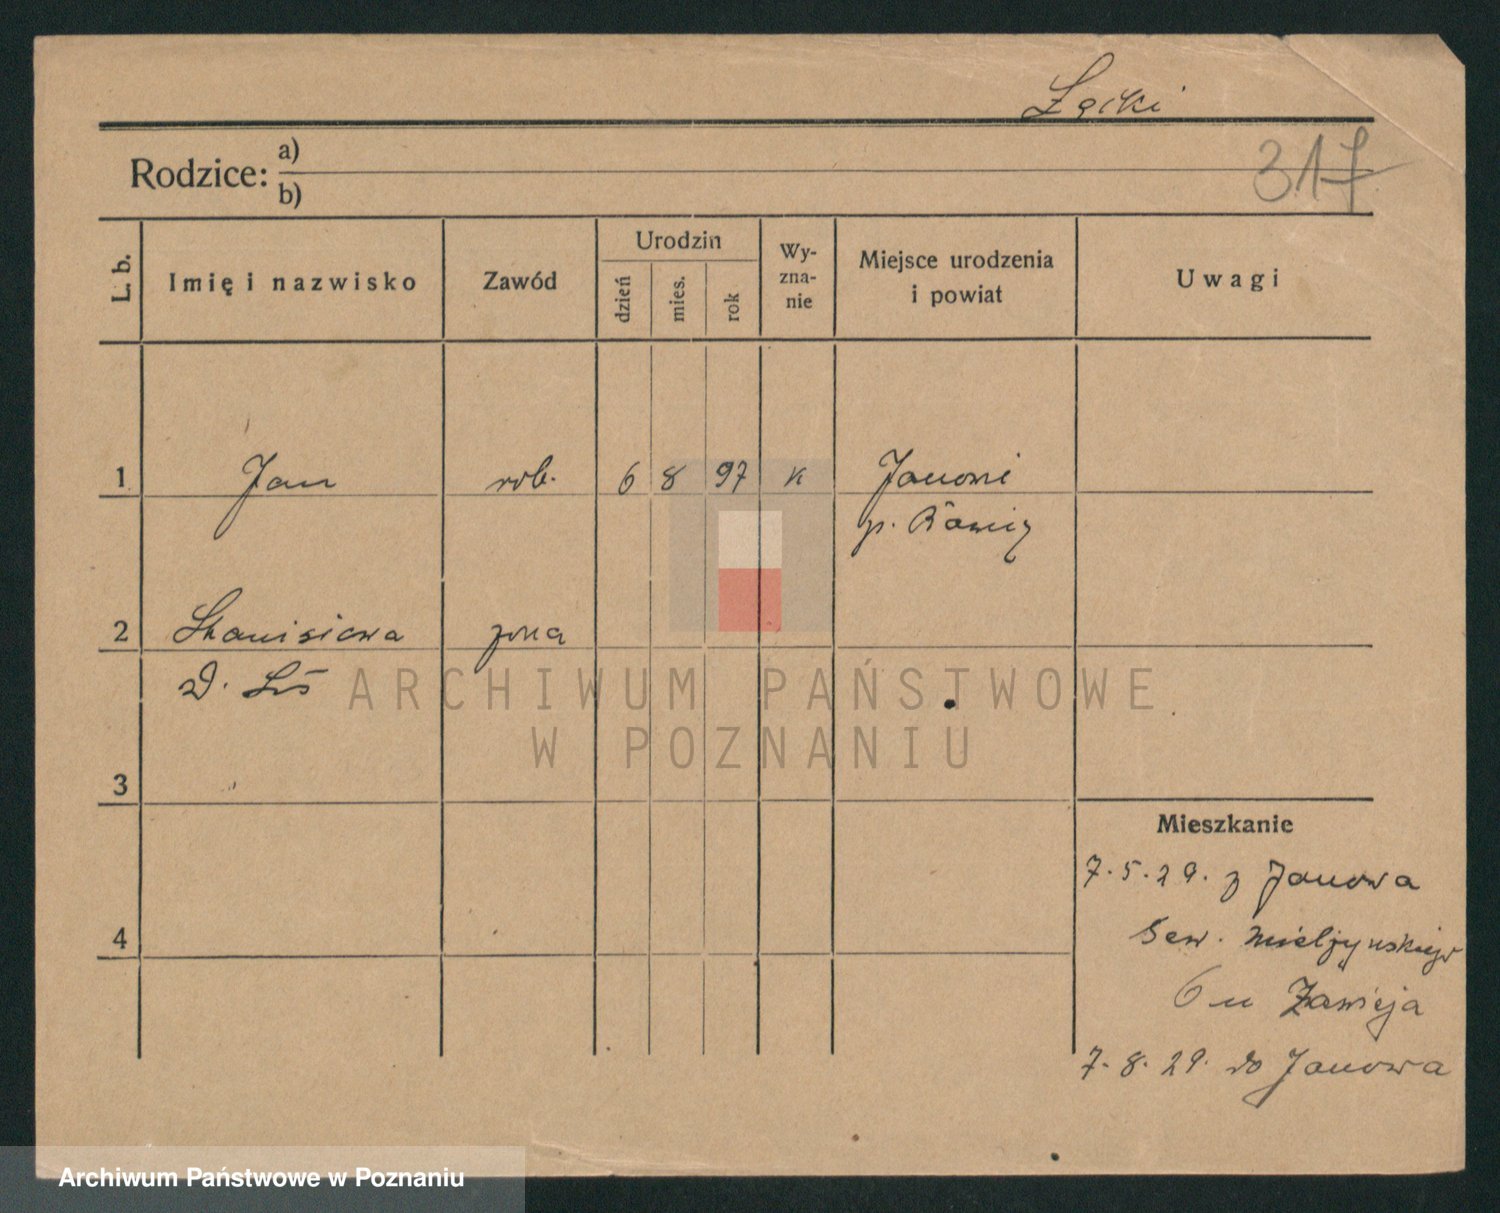 317
Rodzice: a)
b)
L. b.
Imię i nazwisko
Zawód
Urodzin
dzień
mies.
rok
Wy-
zna-
nie
Miejsce urodzenia
i powiat
Uwagi
1 Jan rob. 6 8 97 k
2 Stanisława żona
3
4
Mieszkanie
7.5.29. z Janowa
Sew. Mielżyńskiego
6 u Zawieja
7.8.29. do Janowa
ARCHIWUM PAŃSTWOWE
W POZNANIU
Archiwum Państwowe w Poznaniu